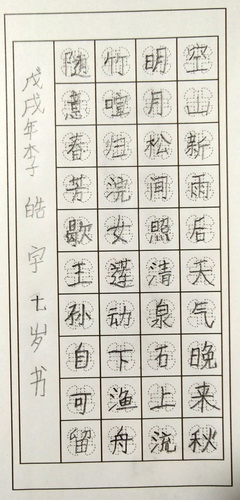 空山新雨后天气晚来秋
明月松间照清泉石上流
竹喧归浣女莲动下渔舟
随意春芳歇王孙自可留
戊戌年李皓宇七岁书